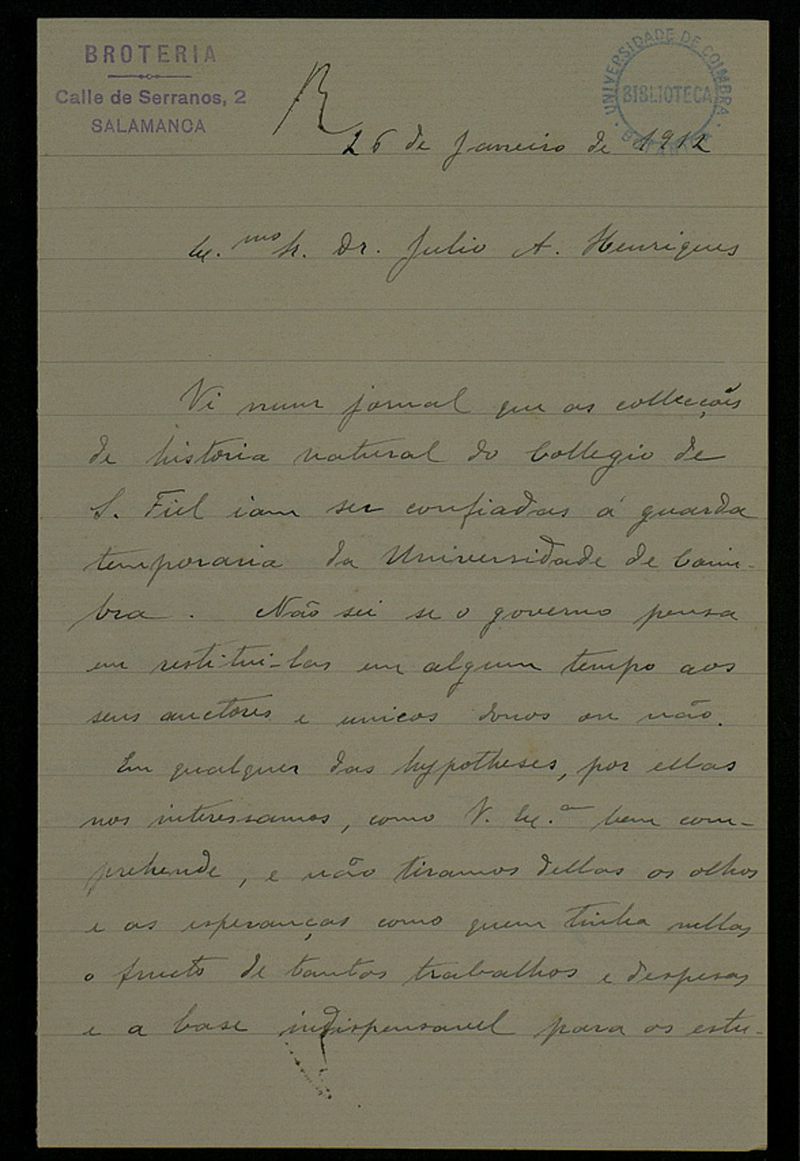 BROTERIA
Calle de Serranos, 2
SALAMANCA
UNIVERSIDADE DE COIMBRA
BIBLIOTECA
R
26 de Janeiro de 1912
Ex.mo Sr. Dr. Julio A. Henriques
Vi num jornal que as collecções
de historia natural do Collegio de
S. Fiel iam ser confiadas á guarda
temporaria da Universidade de Coim-
bra. Não sei se o governo pensa
em restitui-las em algum tempo aos
seus auctores e unicos donos ou não.
Em qualquer das hypotheses, por ellas
nos interessamos, como V. Ex.a bem com-
prehende, e não tiramos dellas os olhos
e as esperanças como quem tinha nellas
o fructo de tantos trabalhos e despesas
e a base indispensavel para os estu-